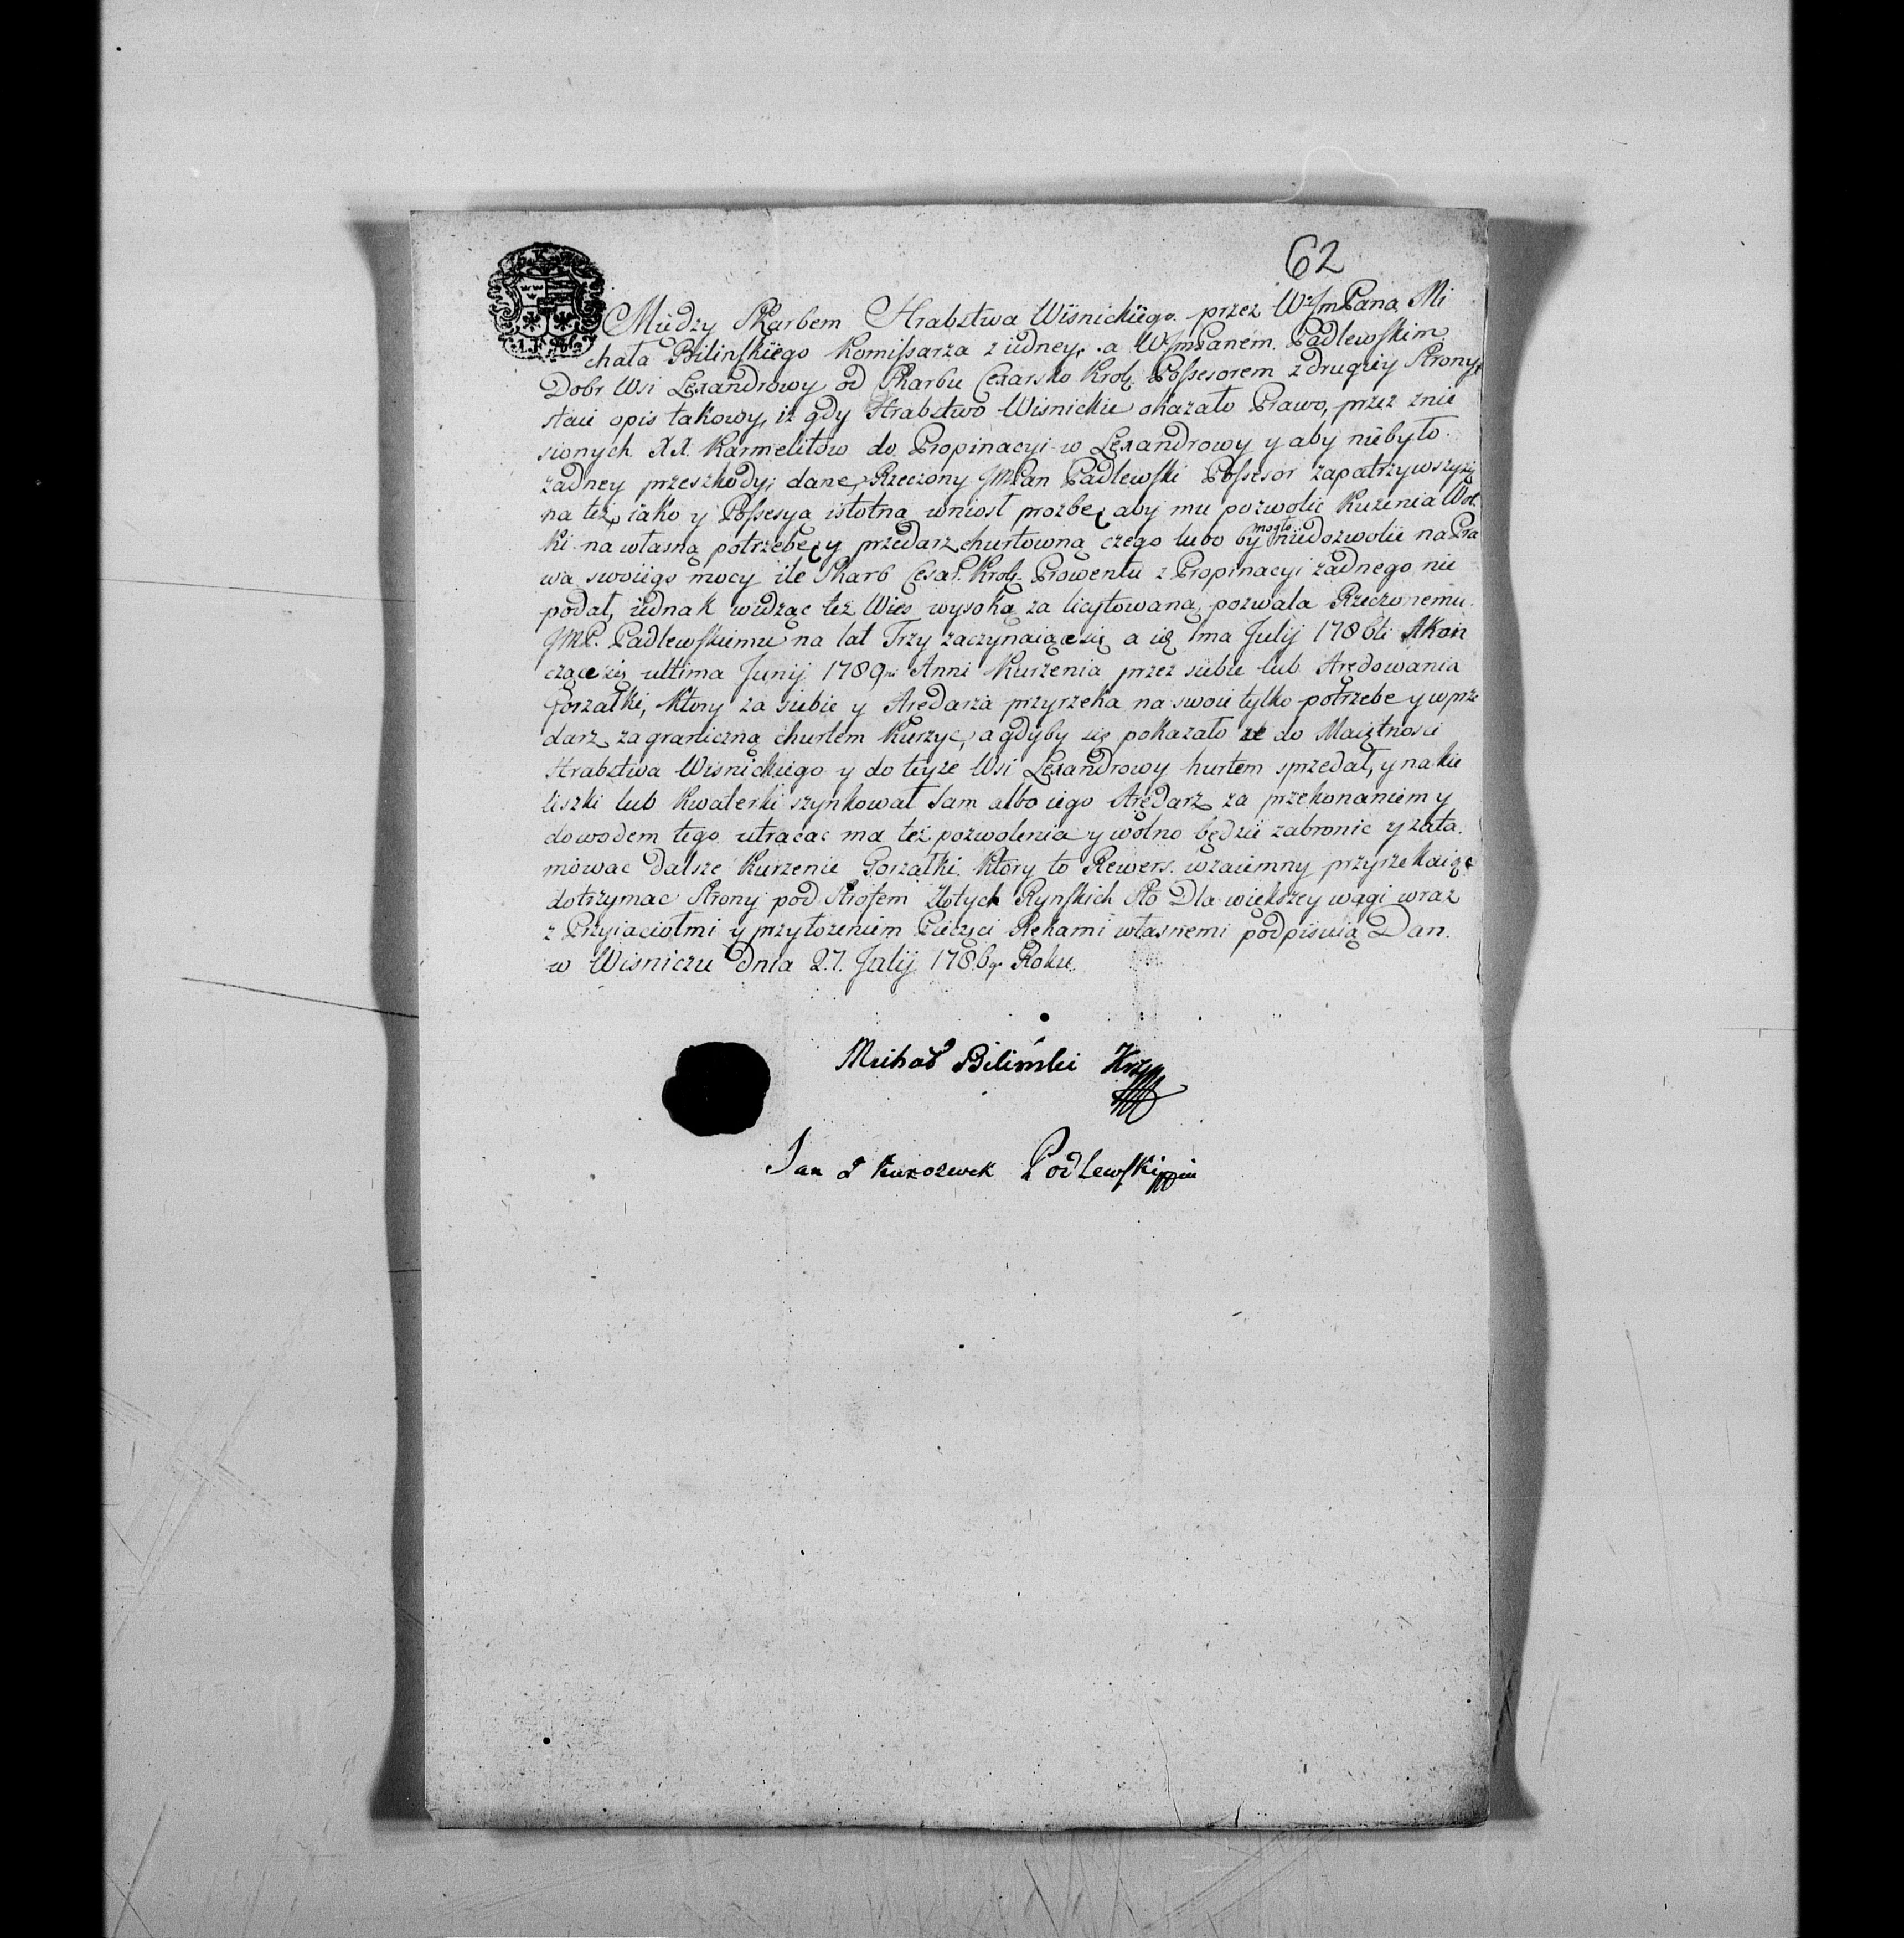 62
Między Skarbem Hrabztwa Wisnickiego przez WJmPana Mi
chała Bilinskiego Komissarza z iedney, a WJmPanem Padlewskim
Dobr Wsi Lexandrowy od Skarbu Cezarsko Krol. Possesorem z drugiey Strony,
staie opis takowy, iż gdy Hrabztwo Wisnickie okazało Prawo, przez znie
sionych XX. Karmelitow do Propinacyi w Lexandrowy y aby niebyło
żadney przeszkody, dane, Rzeczony JmPan Padlewski Possesor zapatrzywszy się
na też, iako y Possesyą istotną wniosł prozbę aby mu pozwolic Kuzenia Wot
ki na własną potrzebę y przedarz churtowną czego lubo by mogło niedozwolic na Pra
wa swoiego mocy ile Skarb Cesar. Krol. Prowentu z Propinacyi żadnego nie
podał, iednak widząc też Wies wysoką za licytowaną, pozwala Rzeczonemu
JMP. Padlewskiemu na lat Trzy zaczynaiące się a 1ma Julij 1786ti Skon
czące się ultima Junij 1789ni Anni Kurzenia przez siebie lub Arędowania
Gorzałki, Ktory za siebie y Arędarza przyrzeka na swoie tylko potrzebe y w prze
darz zagraniczną churtem Kurzyc, a gdyby się pokazało że do Maiętnosci
Hrabztwa Wisnickiego y do teyże Wsi Lexandrowy hurtem sprzedał, y na kie
liszki lub Kwaterki szynkował sam albo iego Arędarz za przekonaniem y
dowodem tego utracac ma też pozwolenia y wolno będzie zabronic y zata
mowac dalsze Kurzenie Gorzałki. Ktory to Rewers wzaiemny przyrzekaią
dotrzymac Strony pod Strofem Złotych Rynskich Sto Dla większey wagi wraz
z Przyiaciołmi y przyłożeniem Pieczęci Rękami własnemi podpisuią Dan.
w Wisniczu Dnia 27. Julij 1786go Roku.
Michał Biliński
Jan Podlewski